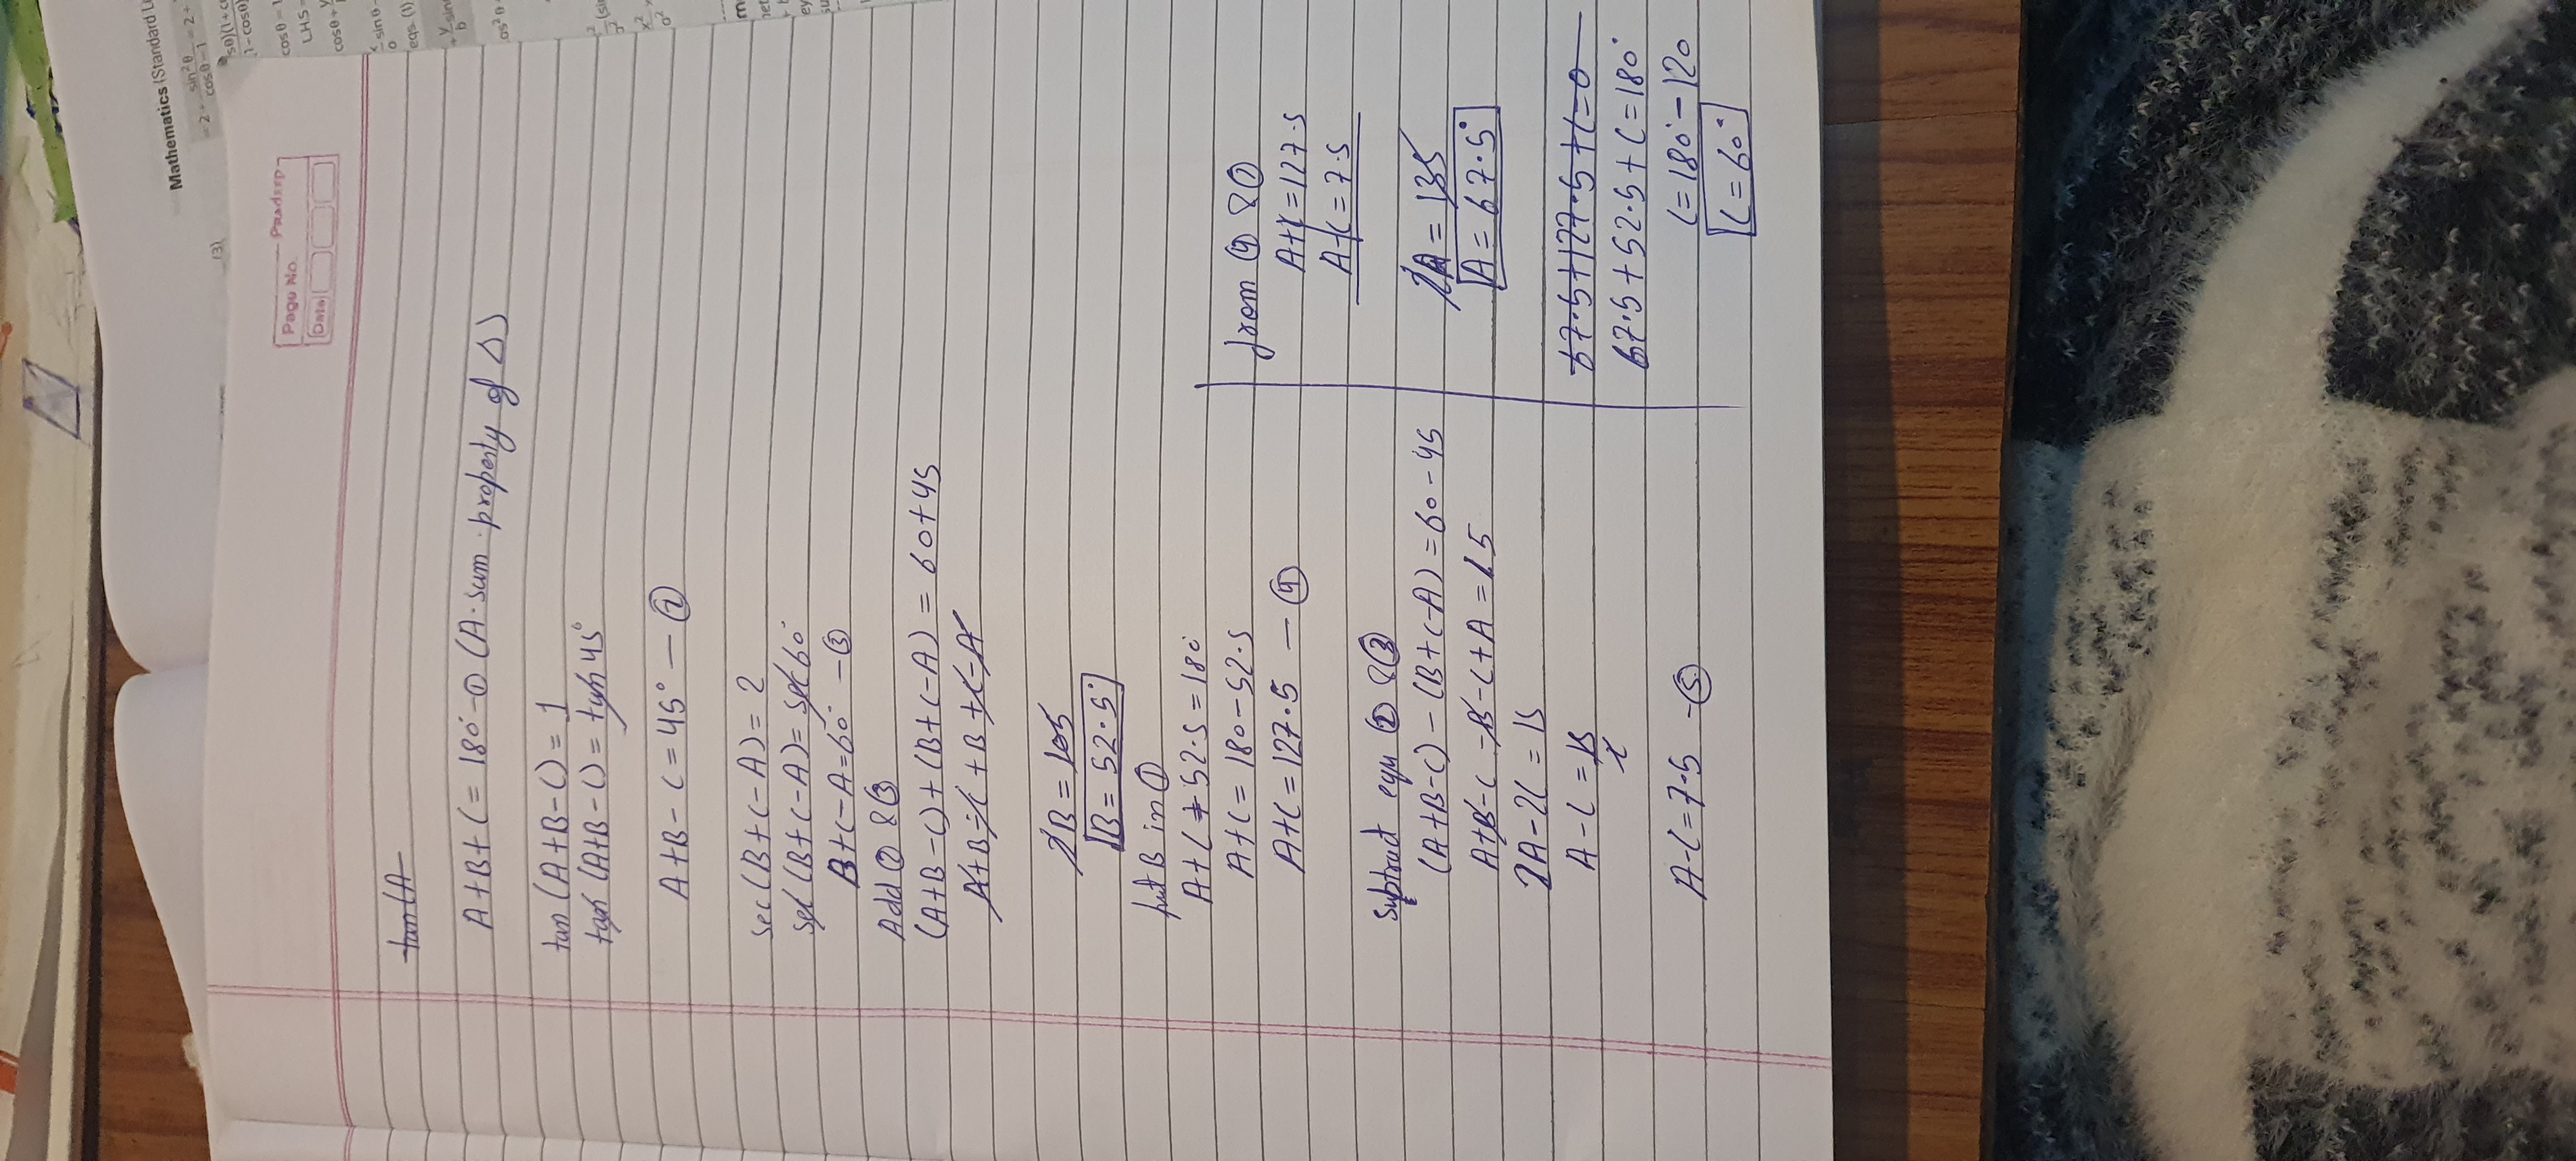 Mathematics (Standard
Page No.
Date
Pradeep
tan(A
A+B+C=180°-① (A.sum.property of △)
tan(A+B-C)=1
tan(A+B-C)=tan45°
A+B-C=45°-②
sec(B+C-A)=2
sec(B+C-A)=sec60°
B+C-A=60°-③
Add ② & ③
(A+B-C)+(B+C-A)=60+45
A+B-C+B+C-A
2B=105
B=52.5°
put B in ①
A+C+52.5=180°
A+C=180-52.5
A+C=127.5-④
Subtract equ ② & ③
(A+B-C)-(B+C-A)=60-45
A+B-C-B-C+A=15
2A-2C=15
A-C=15
2
A-C=7.5-⑤
from ④ &
A+C=127.5
A-C=7.5
2A=135
A=67.5°
67.5+127.5+C=0
67.5+52.5+C=180°
C=180°-120
C=60°